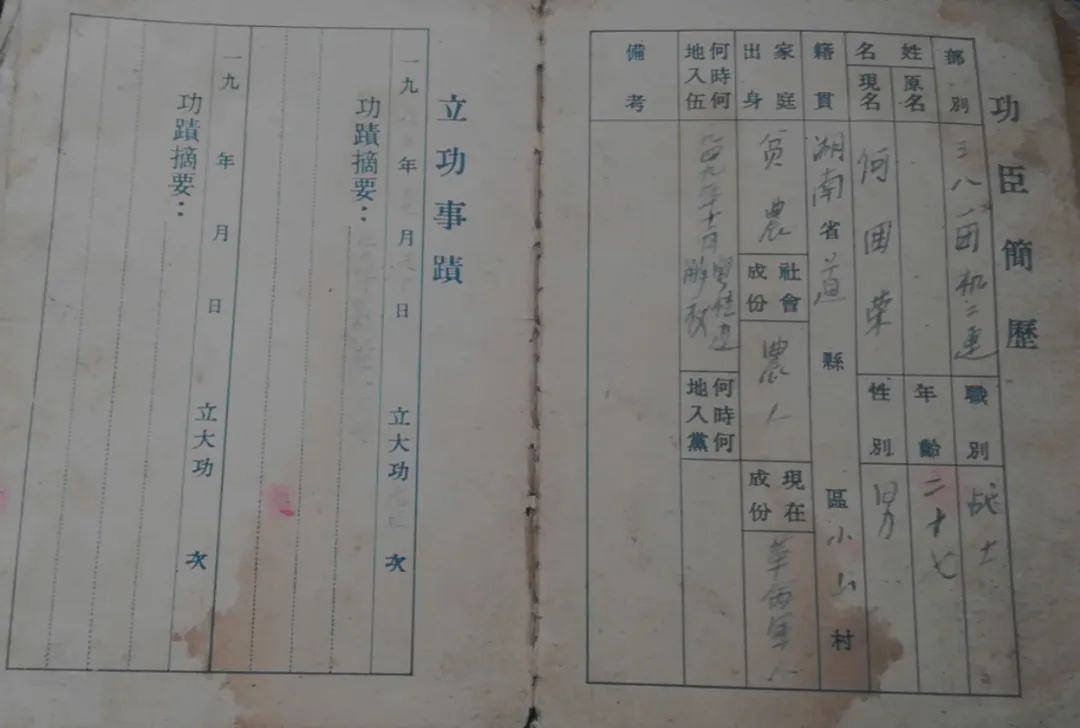 功臣簡歷
部別 三八一团机二連 職別 战士
姓名 原名 年齡 二十七
現名 何田荣 性別 男
籍貫 湖南省道縣 區小山村
家庭出身 贫農 社會成份 農人 現在成份 革命軍人
何時何地入伍 解放 何時何地入黨
備考
立功事蹟
一九 年 月 日 立大功 次
功蹟摘要：
一九 年 月 日 立大功 次
功蹟摘要：